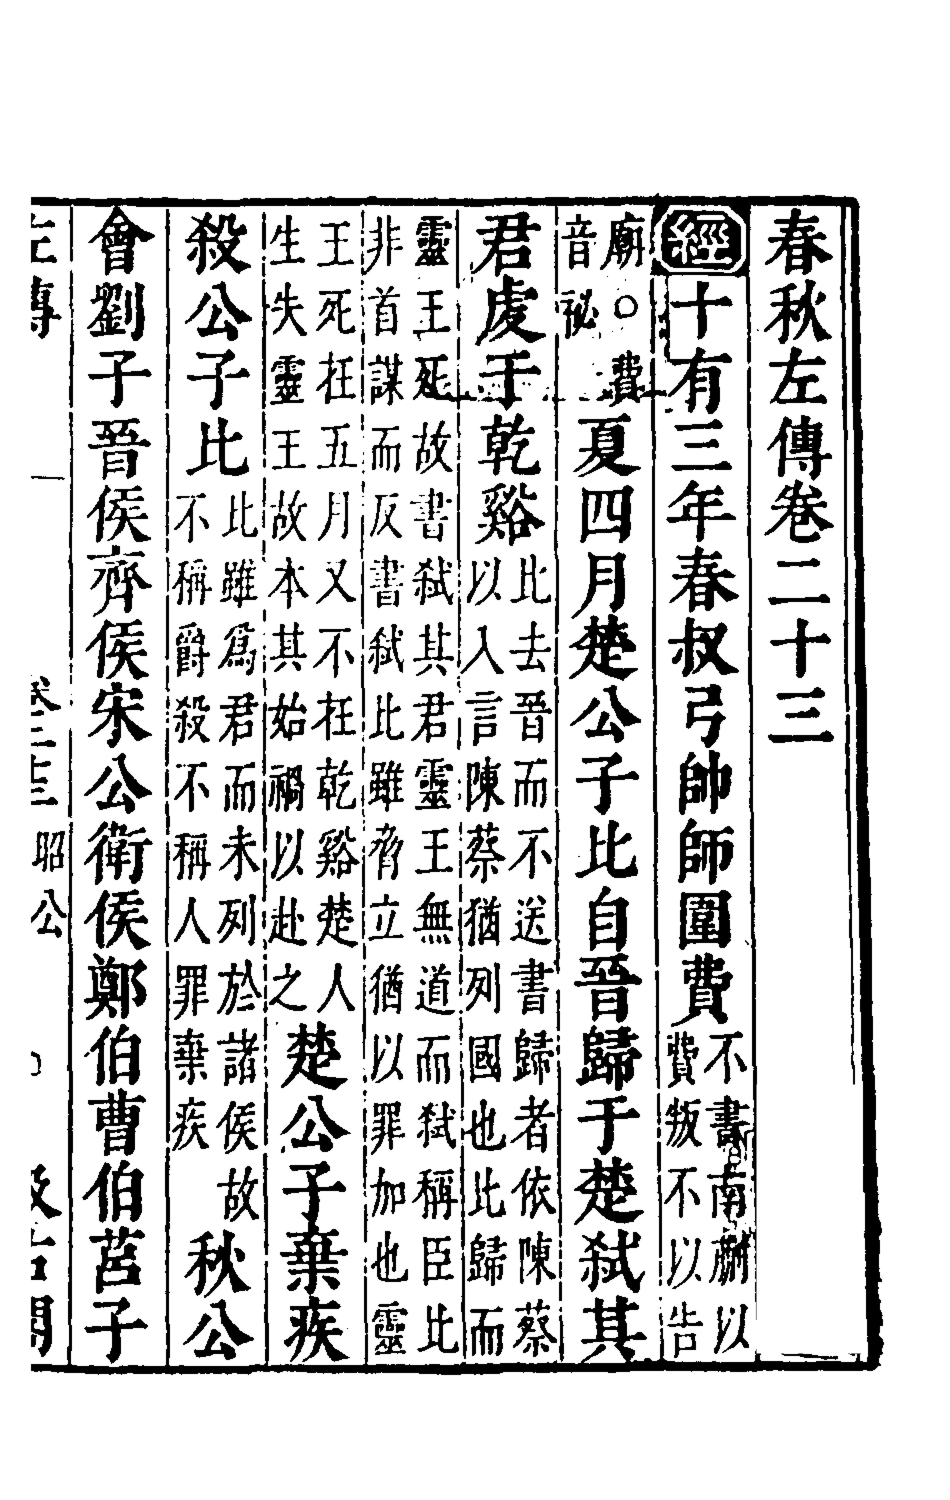 春秋左傳卷二十三
經十有三年春叔弓帥師圍費不書南蒯以費叛不以告
廟○費音祕夏四月楚公子比自晉歸于楚弒其
君虔于乾谿比去晉而不送書歸者依陳蔡以入言陳蔡猶列國也比歸而
靈王死故書弒其君靈王無道而弒稱臣比非首謀而反書弒比雖脅立猶以罪加也靈
王死在五月又不在乾谿楚人生失靈王故本其始禍以赴之楚公子棄疾
殺公子比比雖爲君而未列於諸侯故不稱爵殺不稱人罪棄疾秋公
會劉子晉侯齊侯宋公衛侯鄭伯曹伯莒子
左傳 卷二十三 昭公